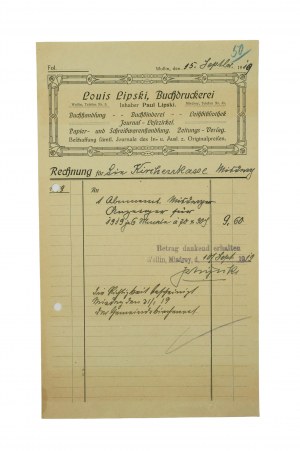 50
Fol.
Wollin, den 15. Septbr. 1919
Louis Lipski, Buchdruckerei
Wollin, Telefon Nr. Inhaber Paul Lipski. Misdroy, Telefon Nr.
Buchhandlung Buchbinderei Leihbibliothek
Journal-Lesezirkel.
Papier- und Schreibwarenhandlung. Zeitungs-Verlag.
Beibaltung sämtl. Journale des In- u. Ausl. z. Originalpreisen.
Rechnung für Die Kirchenkasse Misdroy
An
1 Abonnement Misdroyer
Anzeiger für
1919 Monate 9,60
Betrag dankend erhalten
Wollin, Misdroy, d. Sept. 1919
Die Richtigkeit bescheinigt
Misdroy den 19
Der Gemeindekirchenrat